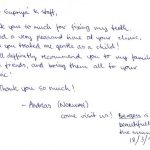 Supriya & staff,
Thank you so much for fixing my teeth
had a very pleasant time at your clinic,
you treated me gentle as a child!
will definitely recommend you to my family
& friends, and bring them all to your
clinic!
Thank you so much!
- Andreas (Norway)
come visit us!
Bergen is
beautiful
the